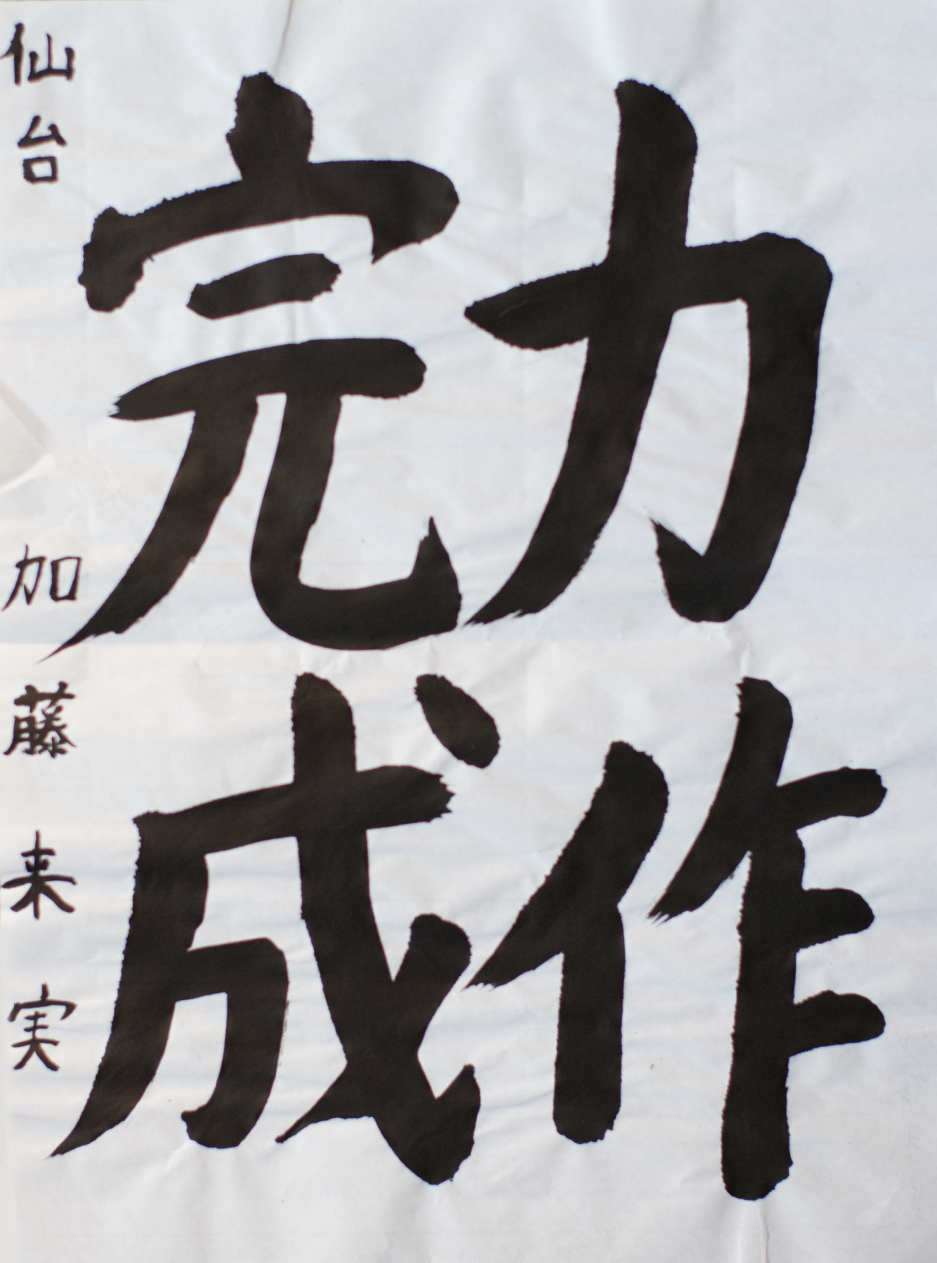 力作
完成
仙台 加藤来実